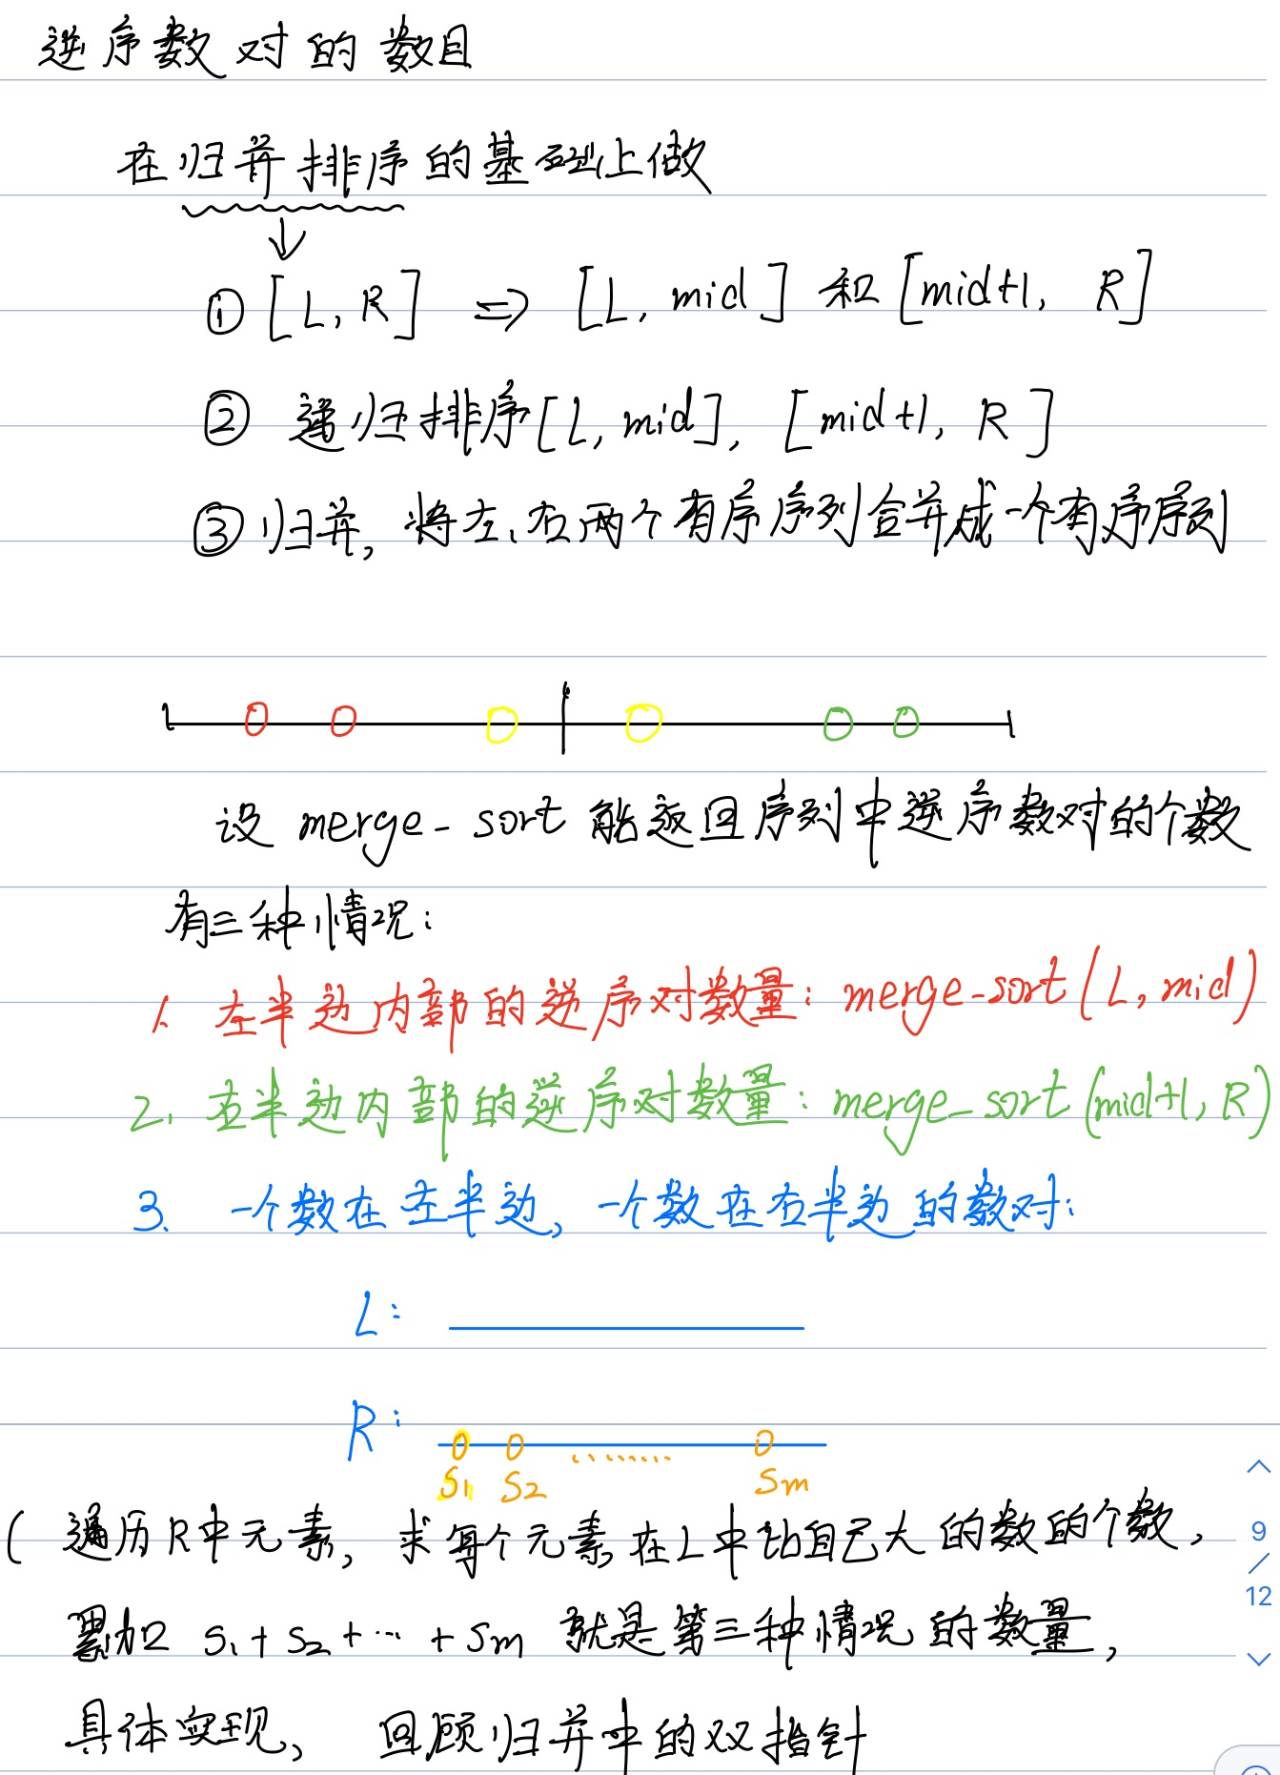 逆序数对的数目
在归并排序的基础上做
① [L, R] => [L, mid] 和 [mid+1, R]
② 递归排序[L, mid], [mid+1, R]
③ 归并, 将左、右两个有序序列合并成一个有序序列
设 merge-sort 能返回序列中逆序数对的个数
有三种情况:
1. 左半边内部的逆序对数量: merge-sort(L, mid)
2. 右半边内部的逆序对数量: merge-sort(mid+1, R)
3. 一个数在左半边, 一个数在右半边的数对:
L:
R:
S1 S2 ........ Sm
( 遍历R中元素, 求每个元素在L中比自己大的数的个数,
累加 S1 + S2 + ... + Sm 就是第三种情况的数量,
具体实现, 回顾归并中的双指针
9
/
12